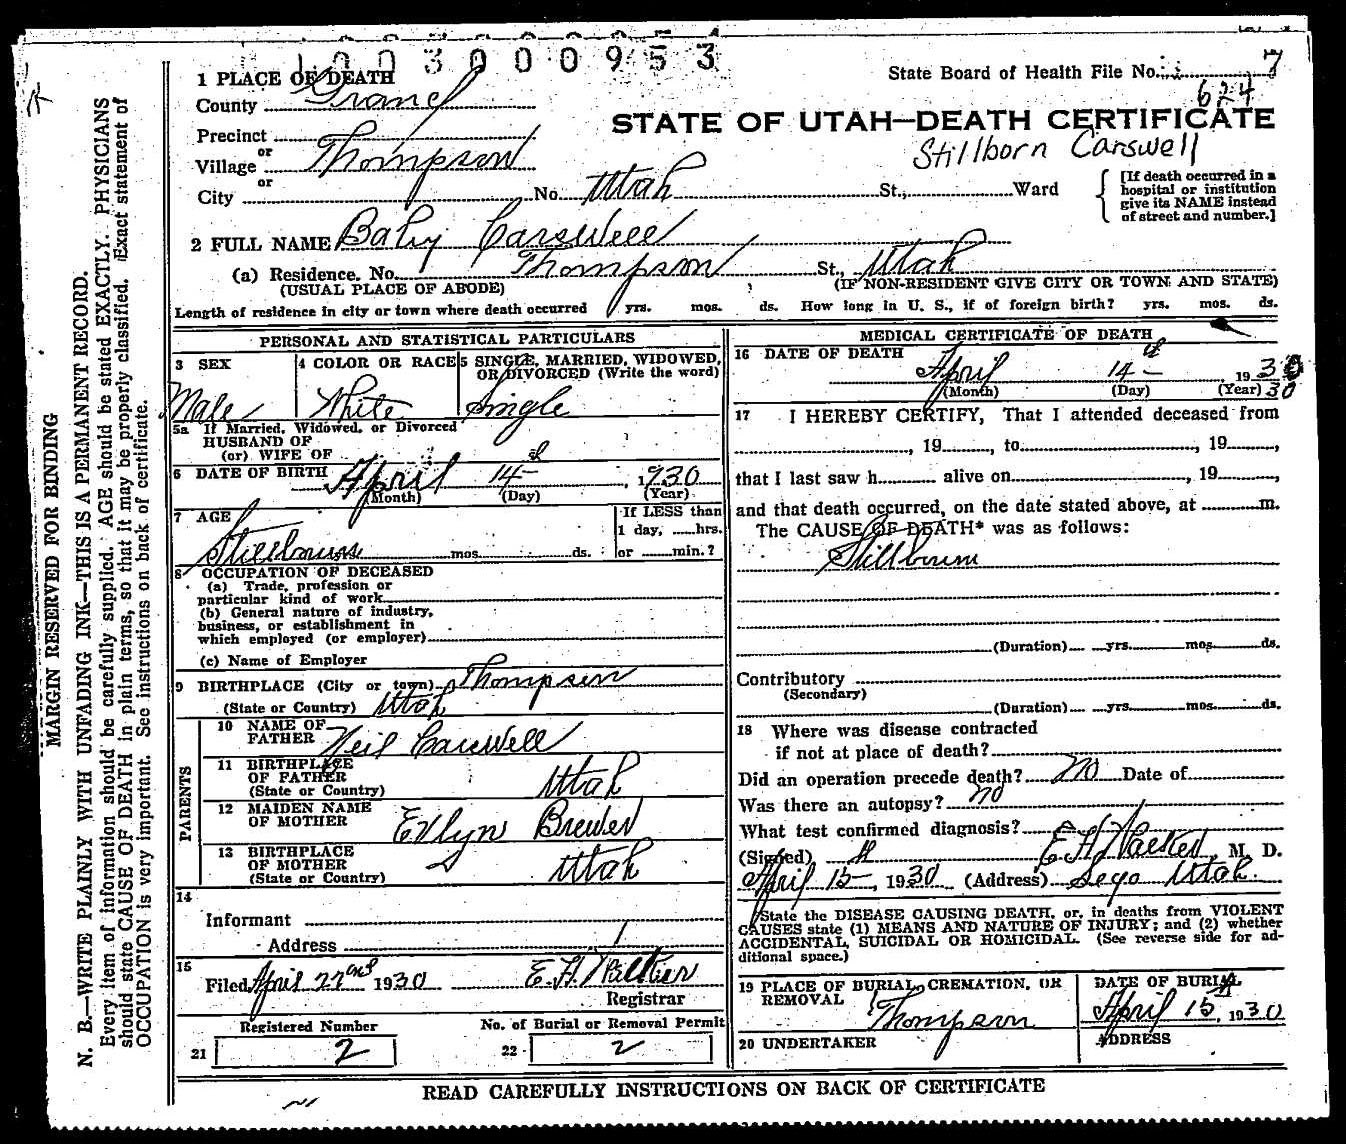 003000953
1 PLACE OF DEATH
State Board of Health File No. 7
County Grand
624
STATE OF UTAH—DEATH CERTIFICATE
Precinct
Stillborn Carswell
or
Village Thompson
or
City No. Utah St., Ward
[If death occurred in a
hospital or institution
give its NAME instead
of street and number.]
2 FULL NAME Baby Carswell
(a) Residence. No. Thompson St., Utah
(USUAL PLACE OF ABODE) (IF NON-RESIDENT GIVE CITY OR TOWN AND STATE)
Length of residence in city or town where death occurred yrs. mos. ds. How long in U. S., if of foreign birth? yrs. mos. ds.
PERSONAL AND STATISTICAL PARTICULARS
3 SEX 4 COLOR OR RACE 5 SINGLE, MARRIED, WIDOWED,
OR DIVORCED (Write the word)
Male White Single
5a If Married, Widowed, or Divorced
HUSBAND OF
(or) WIFE OF
6 DATE OF BIRTH April 14th, 1930
(Month) (Day) (Year)
7 AGE If LESS than
1 day, hrs.
mos. ds. or min.?
8 OCCUPATION OF DECEASED
(a) Trade, profession or
particular kind of work
(b) General nature of industry,
business, or establishment in
which employed (or employer)
(c) Name of Employer
9 BIRTHPLACE (City or town) Thompson
(State or Country) Utah
PARENTS
10 NAME OF
FATHER Neil Carswell
11 BIRTHPLACE
OF FATHER
(State or Country) Utah
12 MAIDEN NAME
OF MOTHER Evlyn Brewer
13 BIRTHPLACE
OF MOTHER
(State or Country) Utah
14
Informant
Address
15
Filed April 22nd 1930 E. H. Walker
Registrar
Registered Number No. of Burial or Removal Permit
21 2 22 2
MEDICAL CERTIFICATE OF DEATH
16 DATE OF DEATH
April 14th 1930
(Month) (Day) (Year) 30
17 I HEREBY CERTIFY, That I attended deceased from
, 19, to, 19,
that I last saw h alive on, 19,
and that death occurred, on the date stated above, at m.
The CAUSE OF DEATH* was as follows:
Stillborn
(Duration) yrs. mos. ds.
Contributory
(Secondary)
(Duration) yrs. mos. ds.
18 Where was disease contracted
if not at place of death?
Did an operation precede death? No Date of
Was there an autopsy? no
What test confirmed diagnosis?
(Signed) E. H. Walker, M. D.
April 15th, 1930 (Address) Sego Utah.
State the DISEASE CAUSING DEATH, or, in deaths from VIOLENT
CAUSES state (1) MEANS AND NATURE OF INJURY; and (2) whether
ACCIDENTAL, SUICIDAL OR HOMICIDAL. (See reverse side for ad-
ditional space.)
19 PLACE OF BURIAL, CREMATION, OR
REMOVAL
Thompson
DATE OF BURIAL
April 15th, 1930
20 UNDERTAKER ADDRESS
READ CAREFULLY INSTRUCTIONS ON BACK OF CERTIFICATE
MARGIN RESERVED FOR BINDING
N. B.—WRITE PLAINLY WITH UNFADING INK—THIS IS A PERMANENT RECORD.
Every item of information should be carefully supplied. AGE should be stated EXACTLY. PHYSICIANS
should state CAUSE OF DEATH in plain terms, so that it may be properly classified. Exact statement of
OCCUPATION is very important. See instructions on back of certificate.